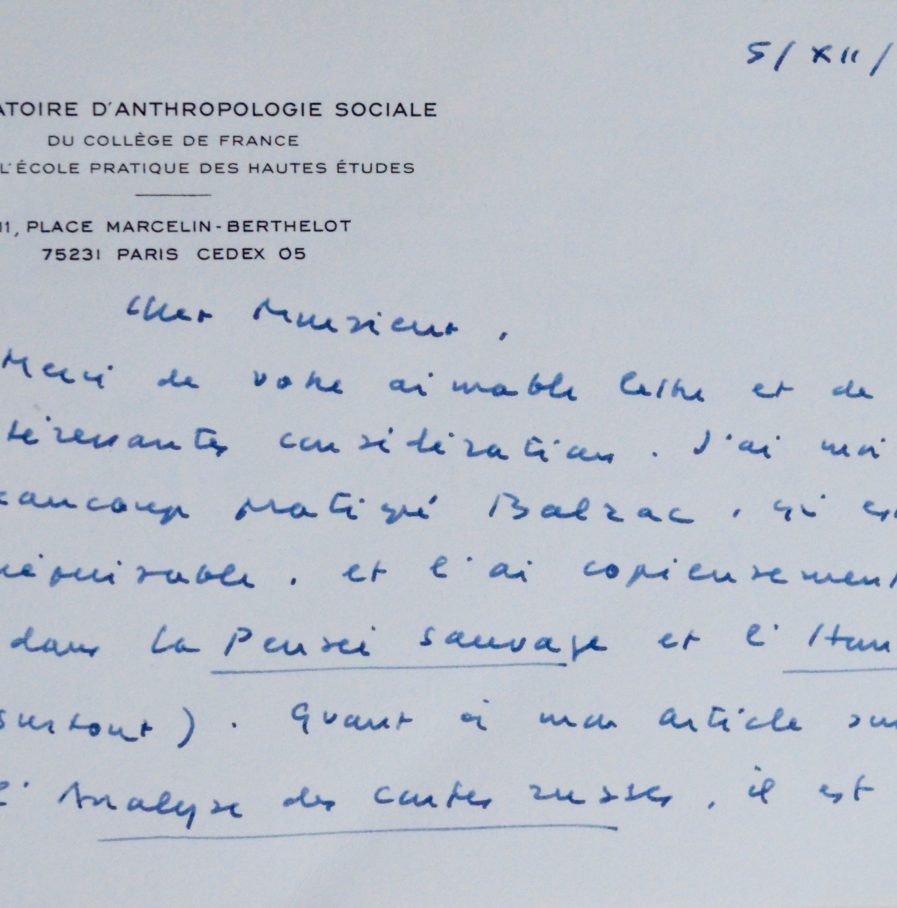 5/XII/
ATOIRE D'ANTHROPOLOGIE SOCIALE
DU COLLÈGE DE FRANCE
L'ÉCOLE PRATIQUE DES HAUTES ÉTUDES
11, PLACE MARCELIN-BERTHELOT
75231 PARIS CEDEX 05
Cher Monsieur,
Merci de votre aimable lettre et de
téressantes considérations. J'ai moi
eaucoup pratiqué Balzac, qui es
népuisable, et l'ai copieusement
dans la Pensée sauvage et l'Hom
surtout). Quant à mon article sur
l'Analyse des contes russes, il est